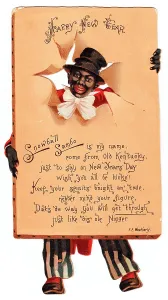 Happy New Year
Snowball
Sambo is my name,
come from Old Kentucky,
just to say on New Year's Day
wish you all be lucky!
Keep your spirits bright an' true,
neber mind your figure,
Dat's de way you will get through,
just like dis ole Nigger